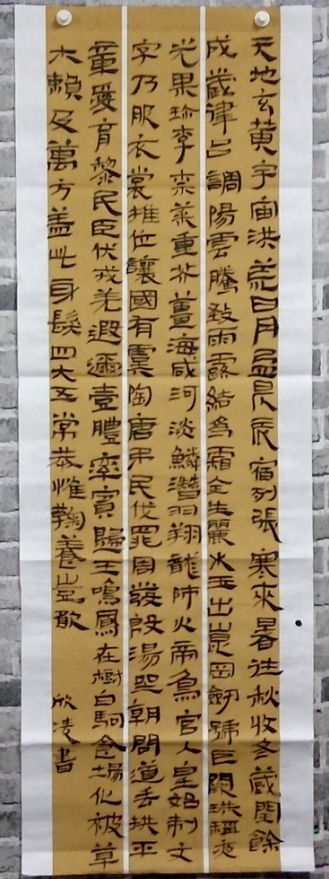 天地玄黃宇宙洪荒日月盈昃辰宿列張寒來暑往秋收冬藏閏餘
成歲律呂調陽雲騰致雨露結為霜金生麗水玉出崑岡劍號巨闕珠稱夜
光果珍李柰菜重芥薑海咸河淡鱗潛羽翔龍師火帝鳥官人皇始制文
字乃服衣裳推位讓國有虞陶唐弔民伐罪周發殷湯坐朝問道垂拱平
章愛育黎民臣伏戎羌遐邇壹體率賓歸王鳴鳳在樹白駒食場化被草
木賴及萬方蓋此身髮四大五常恭惟鞠養豈敢
欣凌書